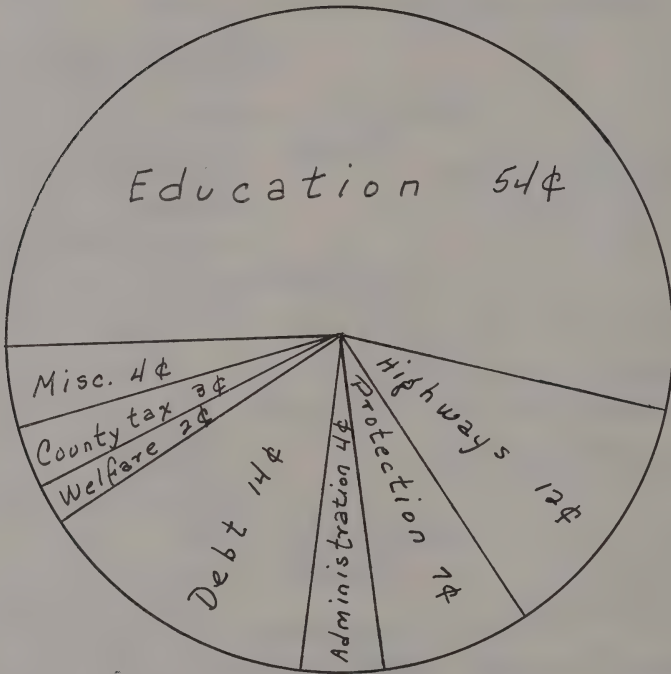 Education 54¢
Misc. 4¢
County tax 3¢
Welfare 2¢
Debt 14¢
Administration 4¢
Protection 7¢
Highways 12¢